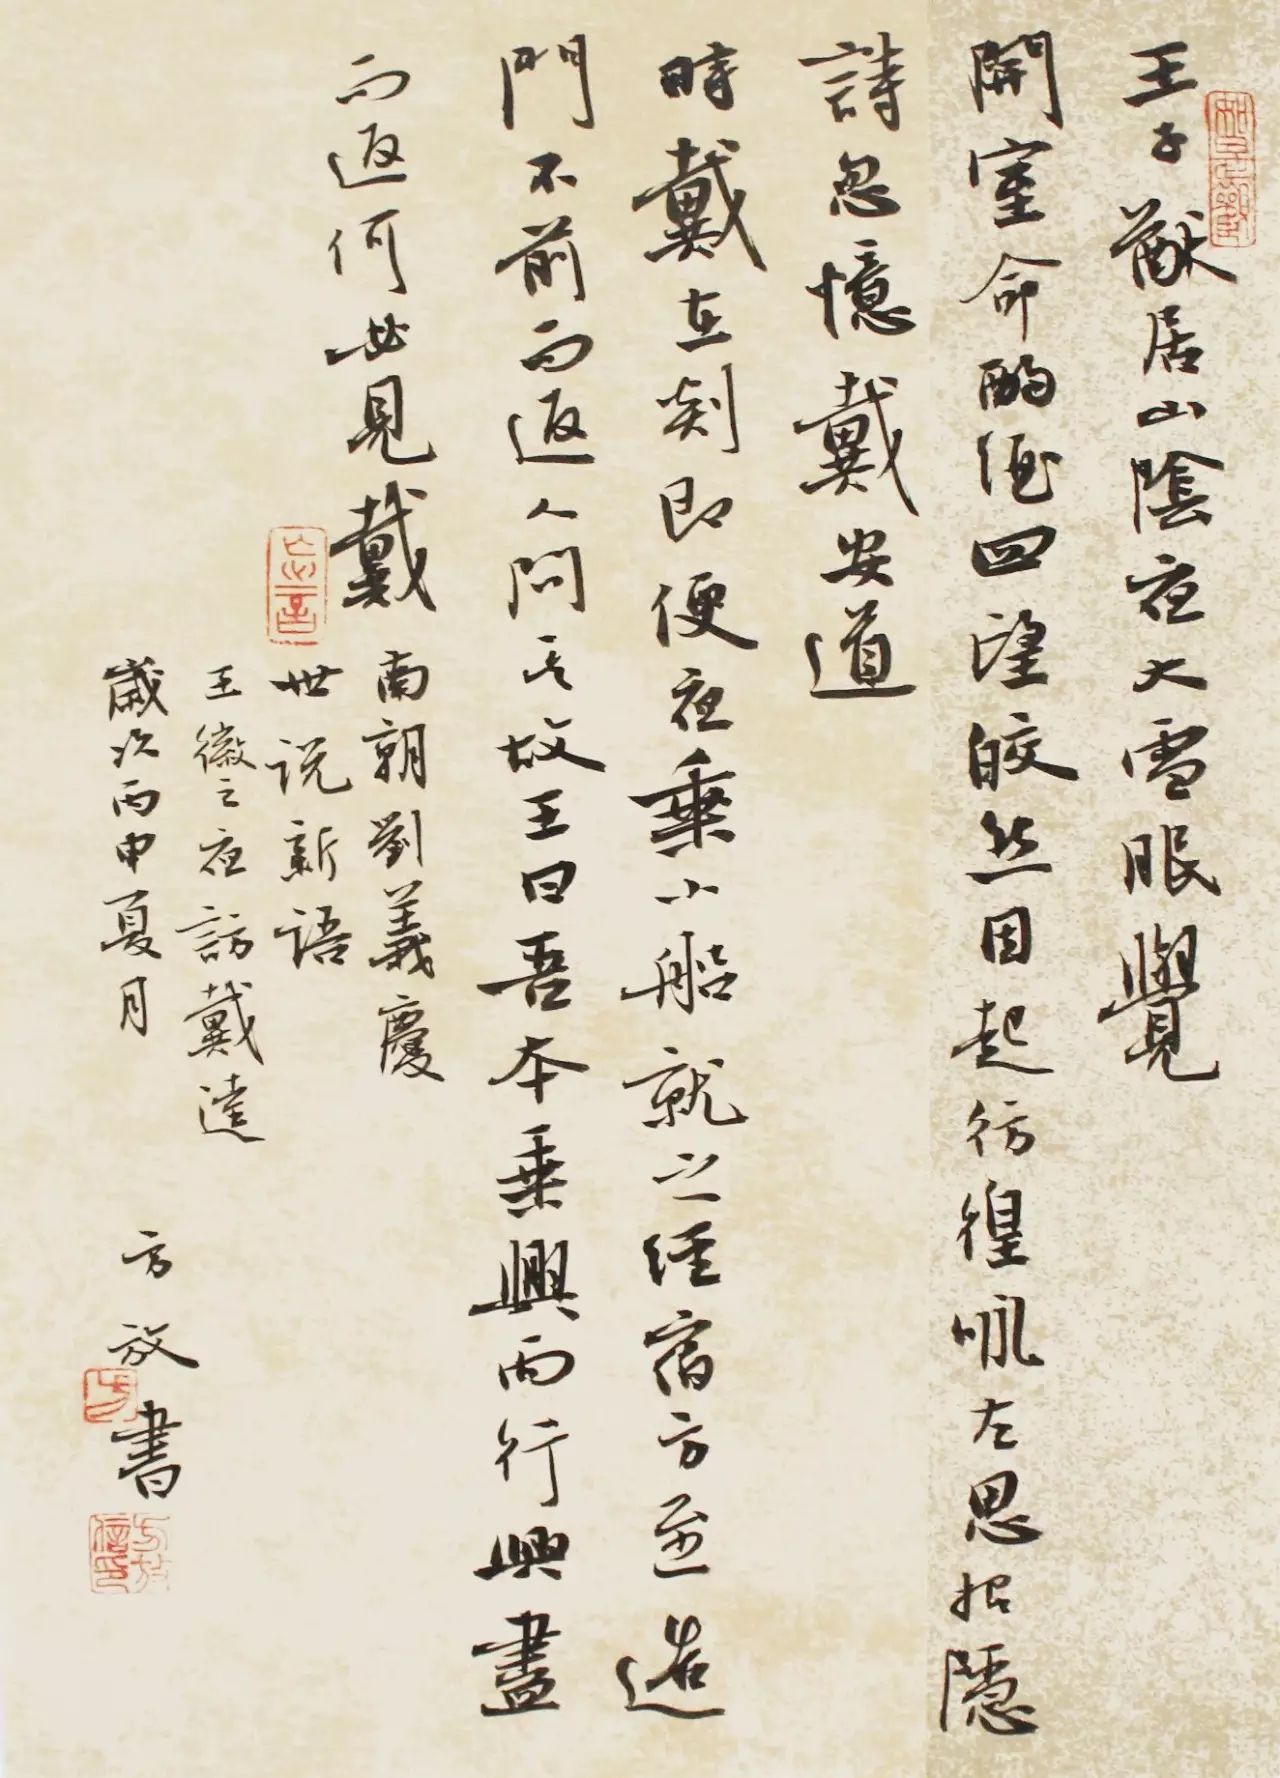 王子猷居山陰夜大雪眠覺
開室命酌酒四望皎然因起彷徨咏左思招隱
詩忽憶戴安道
時戴在剡即便夜乘小船就之經宿方至造
門不前而返人問其故王曰吾本乘興而行興盡
而返何必見戴
南朝劉義慶
世说新语
王徽之夜訪戴逵
歲次丙申夏月 方放書